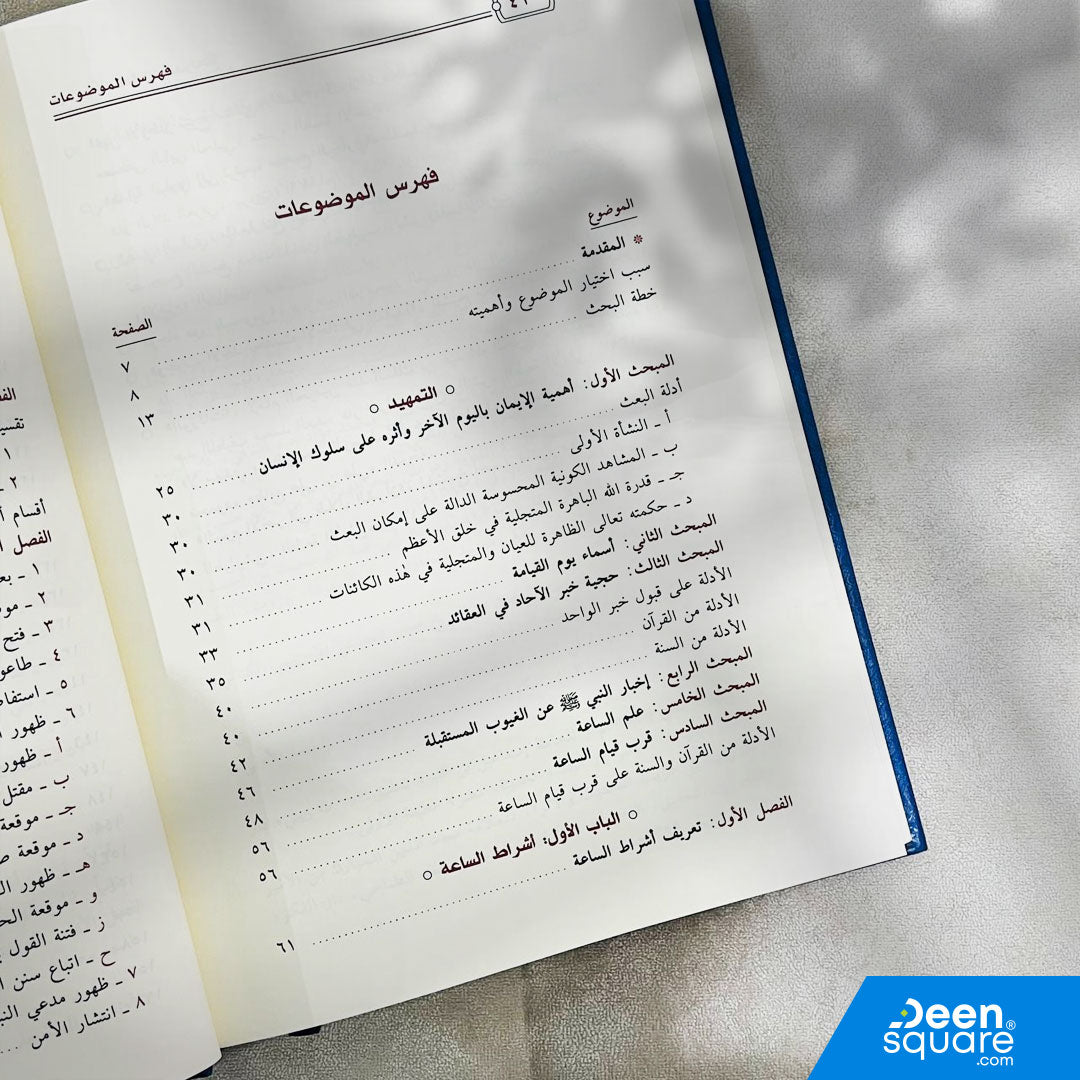 فهرس الموضوعات
فهرس الموضوعات
الموضوع الصفحة
* المقدمة ... ٧
سبب اختيار الموضوع وأهميته ... ٨
خطة البحث ... ١٣
○ التمهيد ○
المبحث الأول: أهمية الإيمان باليوم الآخر وأثره على سلوك الإنسان ... ٢٥
أدلة البعث ... ٣٠
أ ـ النشأة الأولى ... ٣٠
ب ـ المشاهد الكونية المحسوسة الدالة على إمكان البعث ... ٣٠
جـ ـ قدرة الله الباهرة المتجلية في خلق الأعظم ... ٣١
د ـ حكمته تعالى الظاهرة للعيان والمتجلية في هذه الكائنات ... ٣١
المبحث الثاني: أسماء يوم القيامة ... ٣٣
المبحث الثالث: حجية خبر الآحاد في العقائد ... ٣٥
الأدلة على قبول خبر الواحد ... ٤٠
الأدلة من القرآن ... ٤٠
الأدلة من السنة ... ٤٢
المبحث الرابع: إخبار النبي ﷺ عن الغيوب المستقبلة ... ٤٦
المبحث الخامس: علم الساعة ... ٤٨
المبحث السادس: قرب قيام الساعة ... ٥٦
الأدلة من القرآن والسنة على قرب قيام الساعة ... ٥٦
○ الباب الأول: أشراط الساعة ○
الفصل الأول: تعريف أشراط الساعة ... ٦١
١
٢ ـ
أقسام
الفصل
١ ـ
٢ ـ
٣ ـ فتح
٤ ـ
٥ ـ
٦ ـ ظهور
أ ـ ظهور
ب ـ مقتل
جـ ـ موقعة
د ـ موقعة
هـ ـ ظهور
و ـ موقعة
ز ـ فتنة القول
ح ـ اتباع سنن
٧ ـ ظهور مدعي
٨ ـ انتشار الأمن ...
Deen
square®
.com